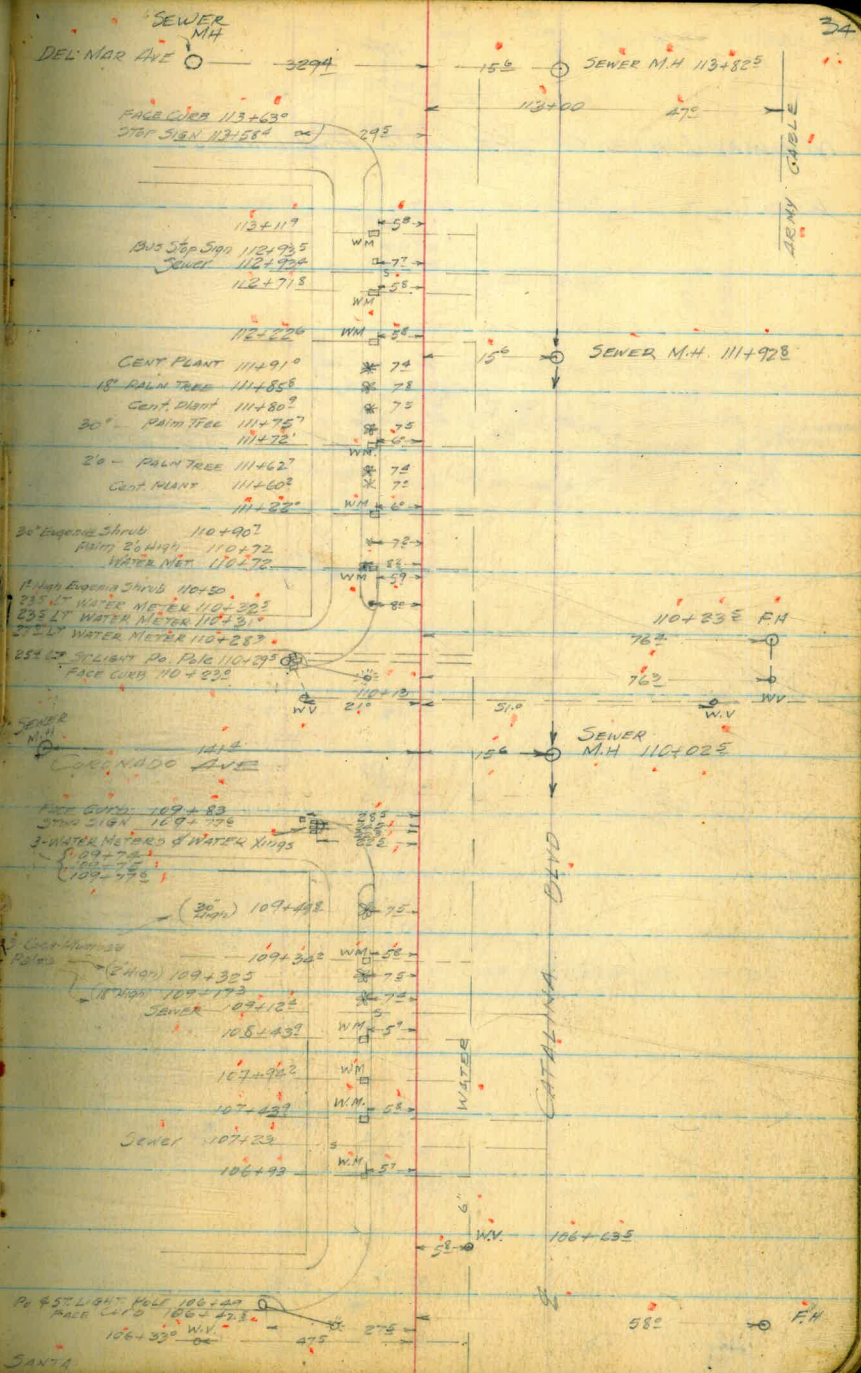 34
SEWER
MH
DEL MAR AVE 329⁴ 15⁶ SEWER M.H 113+82⁵
113+00 47⁰
ARMY CABLE
FACE CURB 113+63⁰
STOP SIGN 113+58⁴ 29⁵
113+11⁹ WM 5⁸
BUS STOP Sign 112+93⁵ 7⁷
Sewer 112+93⁴ S
112+71⁸ WM 5⁸
112+22⁶ WM 5⁸
15⁶ SEWER M.H. 111+92⁸
CENT PLANT 111+91⁰ 7⁴
18" PALM TREE 111+85⁸ 7⁸
Cent. Plant 111+80² 7⁵
30" - Palm Tree 111+75⁷ 7⁵
111+72' WM 6⁰
2'0 - PALM TREE 111+62⁷ 7⁴
Cent. PLANT 111+60²
111+22⁰ WM 6⁰
30" Eugenia Shrub 110+90²
Palm 2'0 High 110+72
WATER MET. 110+72 WM 5⁹
1' High Eugenia Shrub 110+50 8⁰
23⁵ LT WATER METER 110+32⁵
23⁵ LT WATER METER 110+31⁰
LT WATER METER 110+28³
110+23⁵ F.H
76²
ST LIGHT Po. Pole 110+29⁵
FACE CURB 110+23⁰
110+13
76²
WV
WV 21⁰ 51.0 W.V
SEWER
M.H 141⁴ 15⁶ SEWER
M.H 110+02⁵
CORONADO AVE
FACE CURB 109+83
STOP SIGN 109+77⁶
3-WATER METERS & WATER Xings
109+77⁶
(30" High) 109+49² 7⁵
109+34² WM 5⁸
Palms
(2' High) 109+32⁵ 7⁵
(18" High) 109+17³ 7⁴
SEWER 109+12⁴ S
108+43⁹ WM 5⁹
107+94² WM
107+43⁹ W.M. 5⁸
Sewer 107+23 S
106+93 W.M 5⁷
WATER
6"
CATALINA BLVD
5⁸ W.V. 106+63⁵
Po & ST. LIGHT POLE 106+49
FACE CURB 106+42³
27⁵
58² F.H
106+33⁰ W.V. 47⁵
SANTA